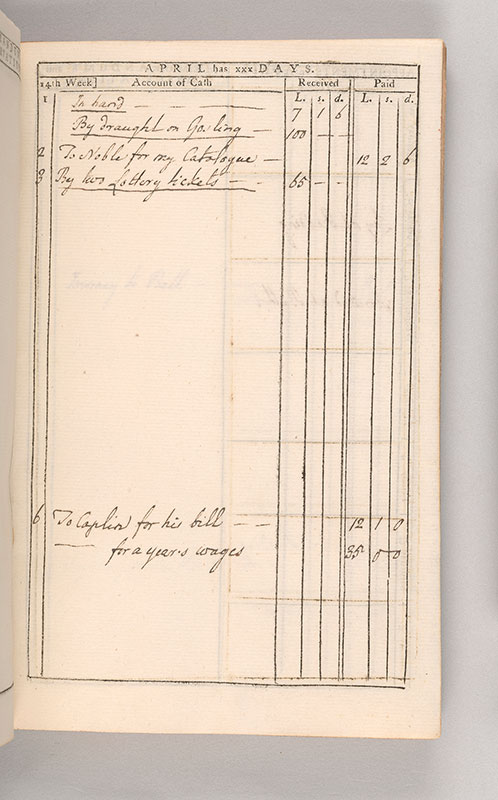 APRIL has xxx DAYS.
14th Week] Account of Cash Received Paid
L. s. d. L. s. d.
1 In hand — — — 7 1 6
By draught on Gosling — 100 — —
2 To Noble for my Catalogue — 12 2 6
3 By two Lottery tickets — — 65 — —
Journey to Bath
6 To Caplin for his bill — — 12 1 0
— for a year's wages 35 0 0